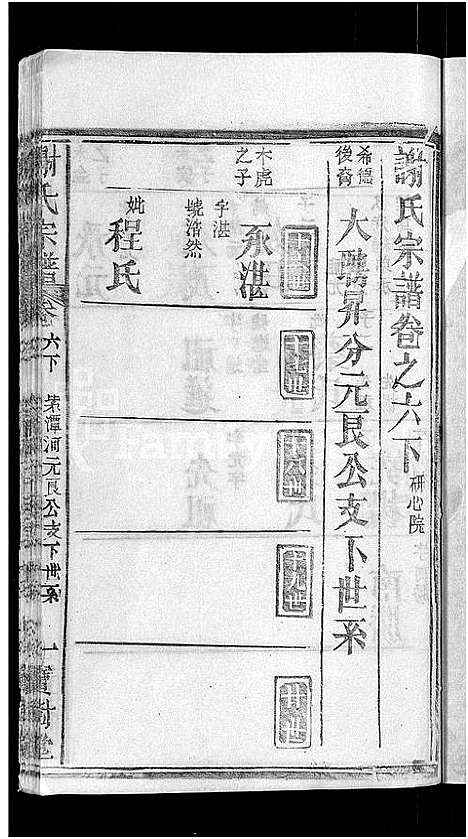 謝氏宗譜卷之六下 研心院
希德後裔
大聰昇分元良公支下世系
十六世
十七世
十八世
十九世
廿世
木虎之子
承湛
字湛
號浩然
妣程氏
謝氏宗譜 卷六下 紫潭河元良公支下世系 一 寶樹堂